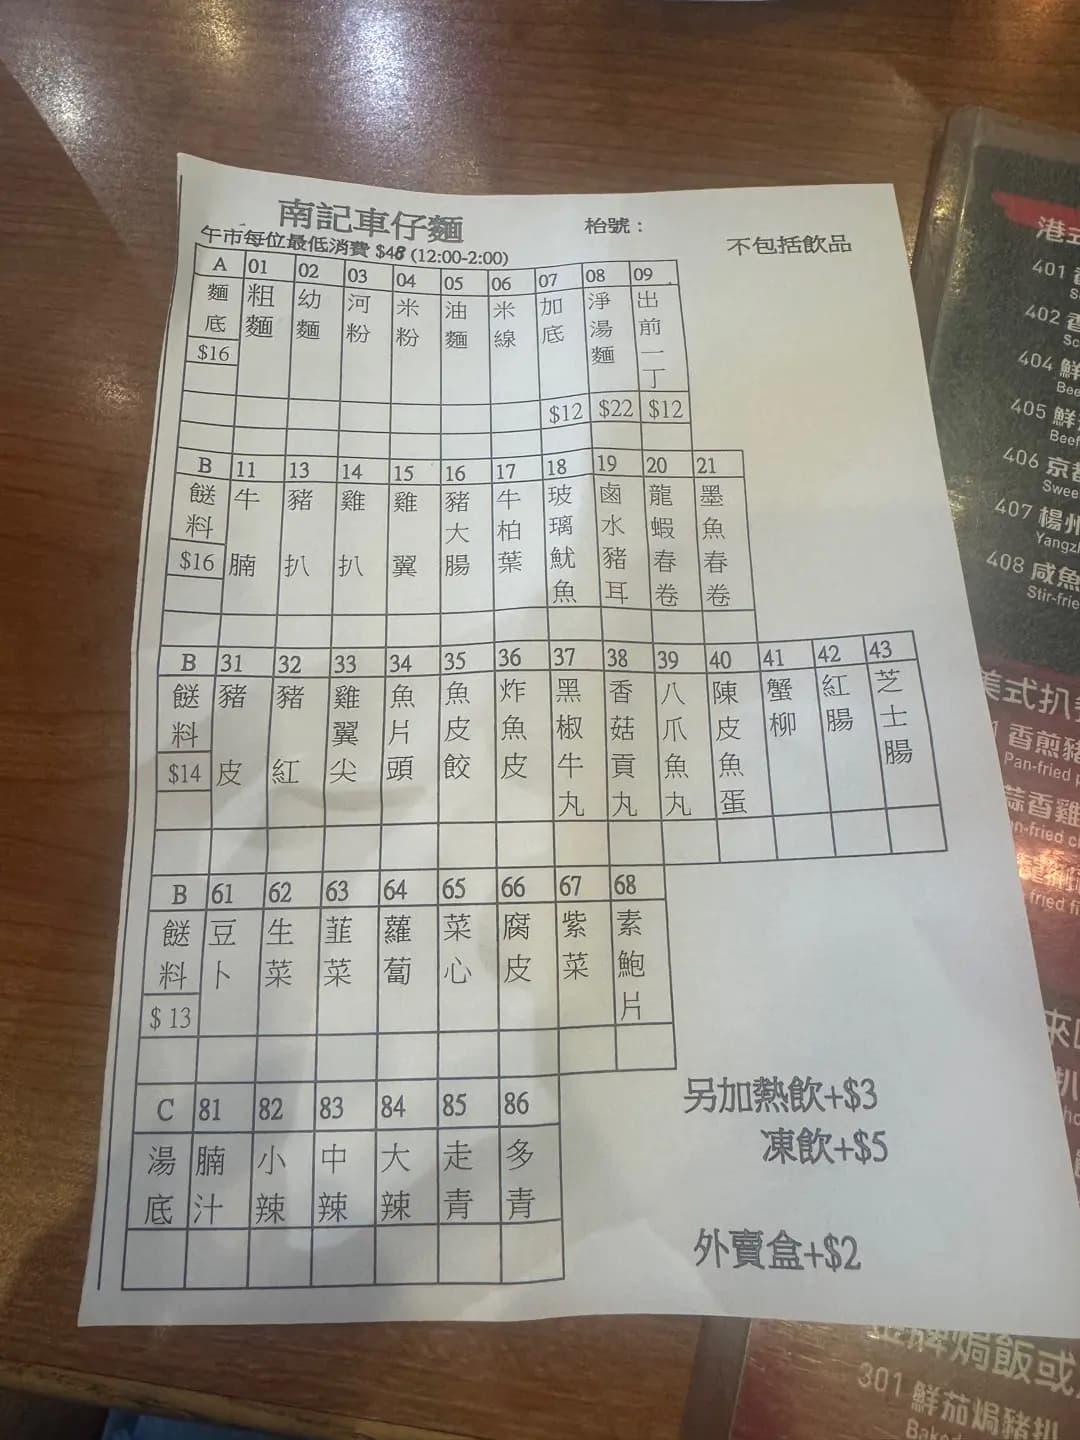 南記車仔麵
枱號：
午市每位最低消費 $48 (12:00-2:00)
不包括飲品
A 01 02 03 04 05 06 07 08 09
麵底 粗麵 幼麵 河粉 米粉 油麵 米線 加底 淨湯麵 出前一丁
$16
$12 $22 $12
B 11 13 14 15 16 17 18 19 20 21
餸料 牛腩 豬扒 雞扒 雞翼 豬大腸 牛柏葉 玻璃魷魚 鹵水豬耳 龍蝦春卷 墨魚春卷
$16
B 31 32 33 34 35 36 37 38 39 40 41 42 43
餸料 豬皮 豬紅 雞翼尖 魚片頭 魚皮餃 炸魚皮 黑椒牛丸 香菇貢丸 八爪魚丸 陳皮魚蛋 蟹柳 紅腸 芝士腸
$14
B 61 62 63 64 65 66 67 68
餸料 豆卜 生菜 韮菜 蘿蔔 菜心 腐皮 紫菜 素鮑片
$ 13
C 81 82 83 84 85 86
湯底 腩汁 小辣 中辣 大辣 走青 多青
另加熱飲+$3
凍飲+$5
外賣盒+$2
港式
401
402
404 鮮
Bee
405 鮮
Beef
406 京都
Swee
407 楊州
Yangz
408 咸魚
Stir-frie
美式扒
香煎豬
Pan-fried
蒜香雞
焗飯或
301 鮮茄焗豬扒